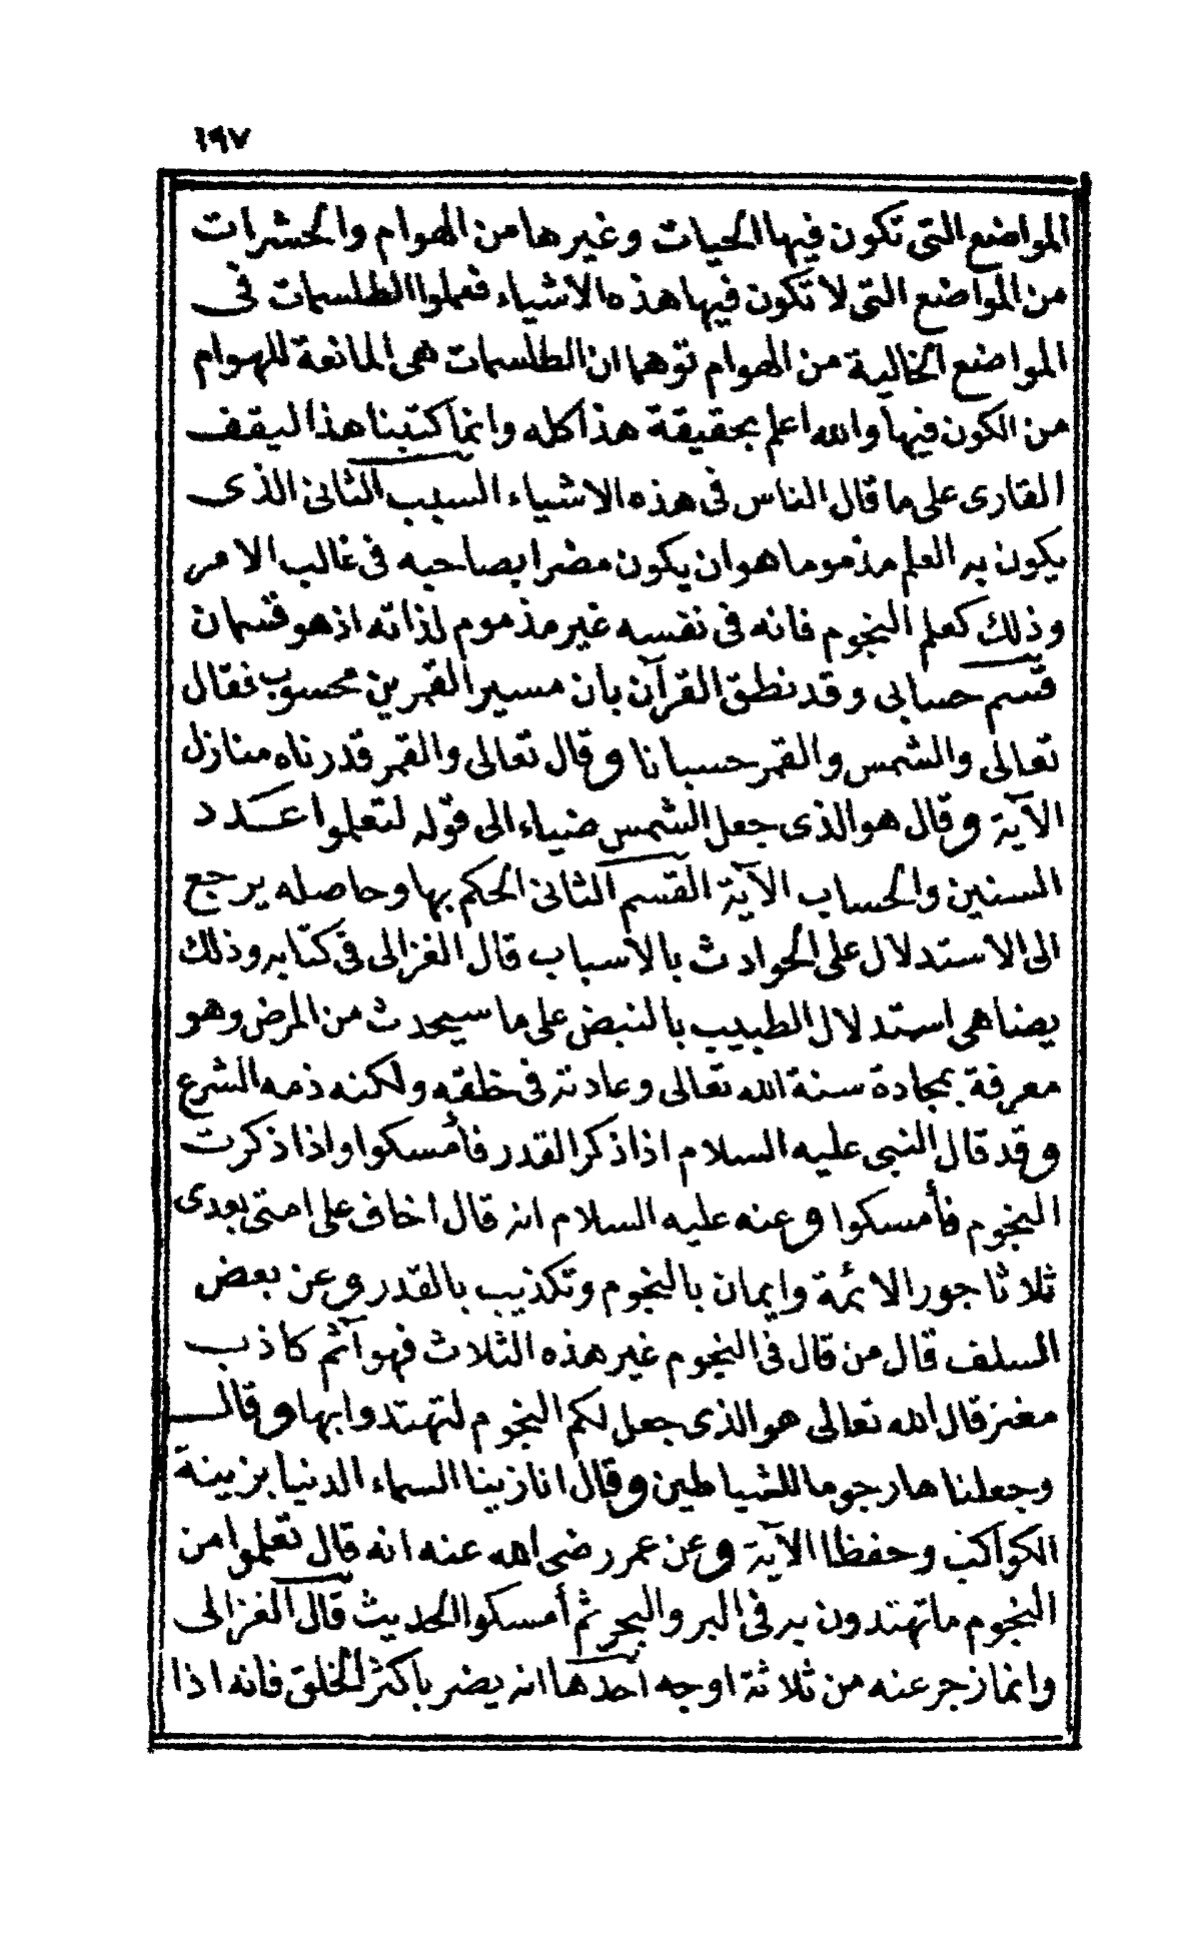 ١٩٧
المواضع التى تكون فيها الحيات وغيرها من الهوام والحشرات
من المواضع التى لا تكون فيها هذه الاشياء فعملوا الطلسمات فى
المواضع الخالية من الهوام توهما ان الطلسمات هى المانعة للهوام
من الكون فيها والله اعلم بحقيقة هذا كله وانما كتبنا هذا ليقف
القارى على ما قال الناس فى هذه الاشياء السبب الثانى الذى
يكون به العلم مذموما هو ان يكون مضرا بصاحبه فى غالب الامر
وذلك كعلم النجوم فانه فى نفسه غير مذموم لذاته اذ هو قسمان
قسم حسابى وقد نطق القرآن بان مسير القمرين محسوب فقال
تعالى والشمس والقمر حسبانا وقال تعالى والقمر قدرناه منازل
الآية وقال هو الذى جعل الشمس ضياء الى قوله لتعلموا عدد
السنين والحساب الآية القسم الثانى الحكم بها وحاصله يرجع
الى الاستدلال على الحوادث بالاسباب قال الغزالى فى كتابه وذلك
يضاهى استدلال الطبيب بالنبض على ما سيحدث من المرض وهو
معرفة بمجادة سنة الله تعالى وعادته فى خلقه ولكنه ذمه الشرع
وقد قال النبى عليه السلام اذا ذكر القدر فأمسكوا واذا ذكرت
النجوم فأمسكوا وعنه عليه السلام انه قال اخاف على امتى بعدى
ثلاثا جور الائمة وايمان بالنجوم وتكذيب بالقدر وعن بعض
السلف قال من قال فى النجوم غير هذه الثلاث فهو آثم كاذب
مغتر قال الله تعالى هو الذى جعل لكم النجوم لتهتدوا بها وقال
وجعلناها رجوما للشياطين وقال انا زينا السماء الدنيا بزينة
الكواكب وحفظا الآية وعن عمر رضى الله عنه انه قال تعلموا من
النجوم ما تهتدون به فى البر والبحر ثم أمسكوا الحديث قال الغزالى
وانما زجر عنه من ثلاثة اوجه احدها انه يضر باكثر الخلق فانه اذا